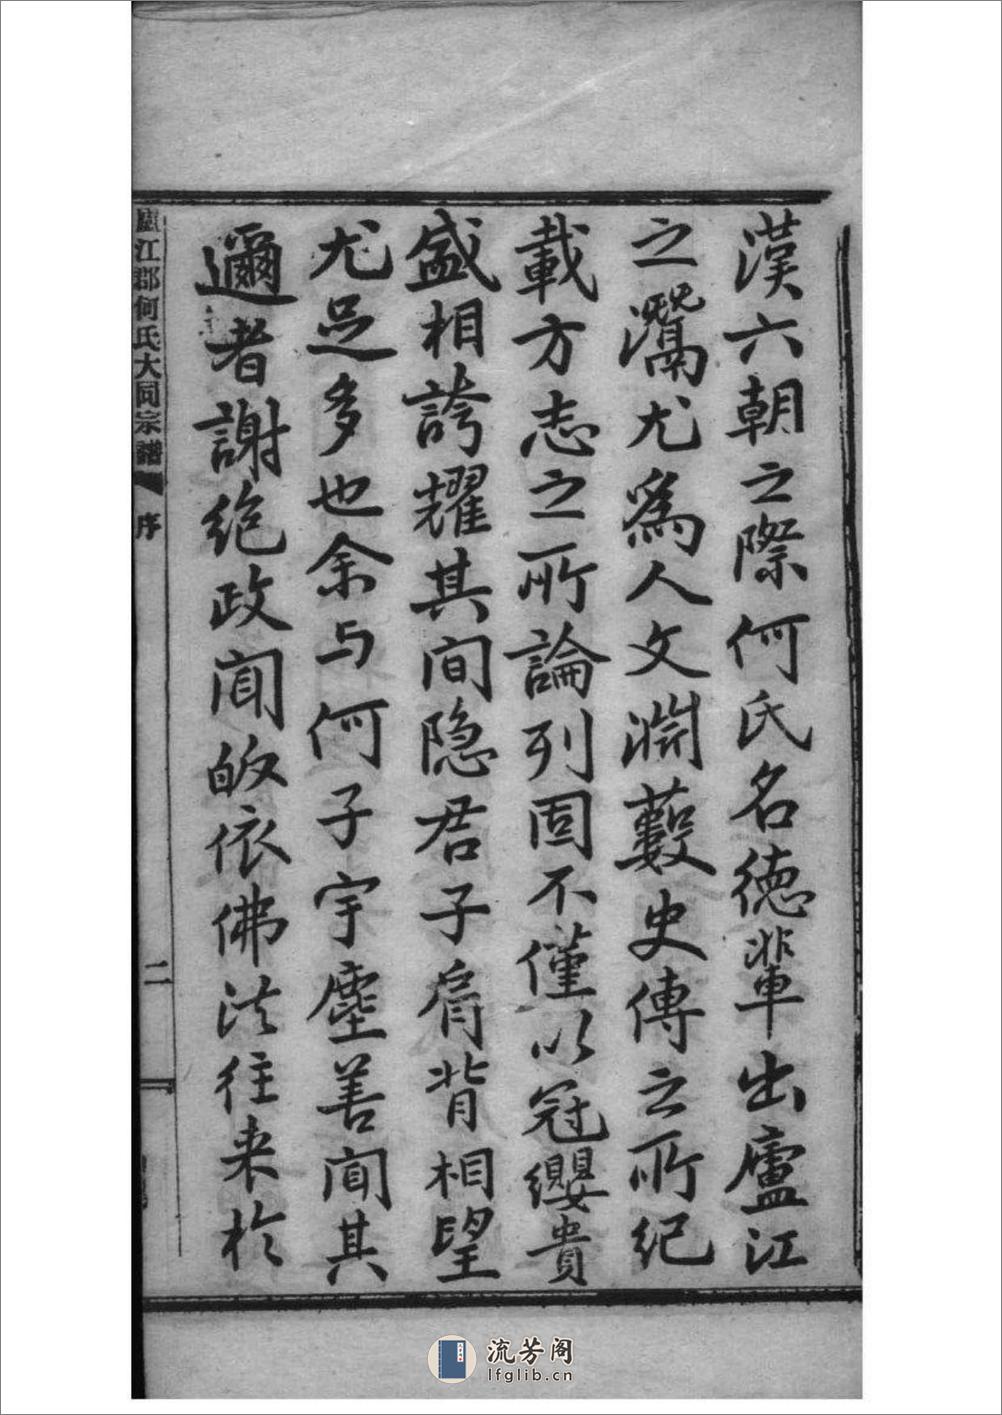 漢六朝之際何氏名德輩出廬江
之灊尤爲人文淵藪史傳之所紀
載方志之所論列固不僅以冠纓貴
盛相誇耀其间隐君子肩背相望
尤足多也余与何子宇塵善闻其
邇者謝絶政闻皈依佛法往来於
廬江郡何氏大同宗譜
序
二
流芳阁
lfglib.cn